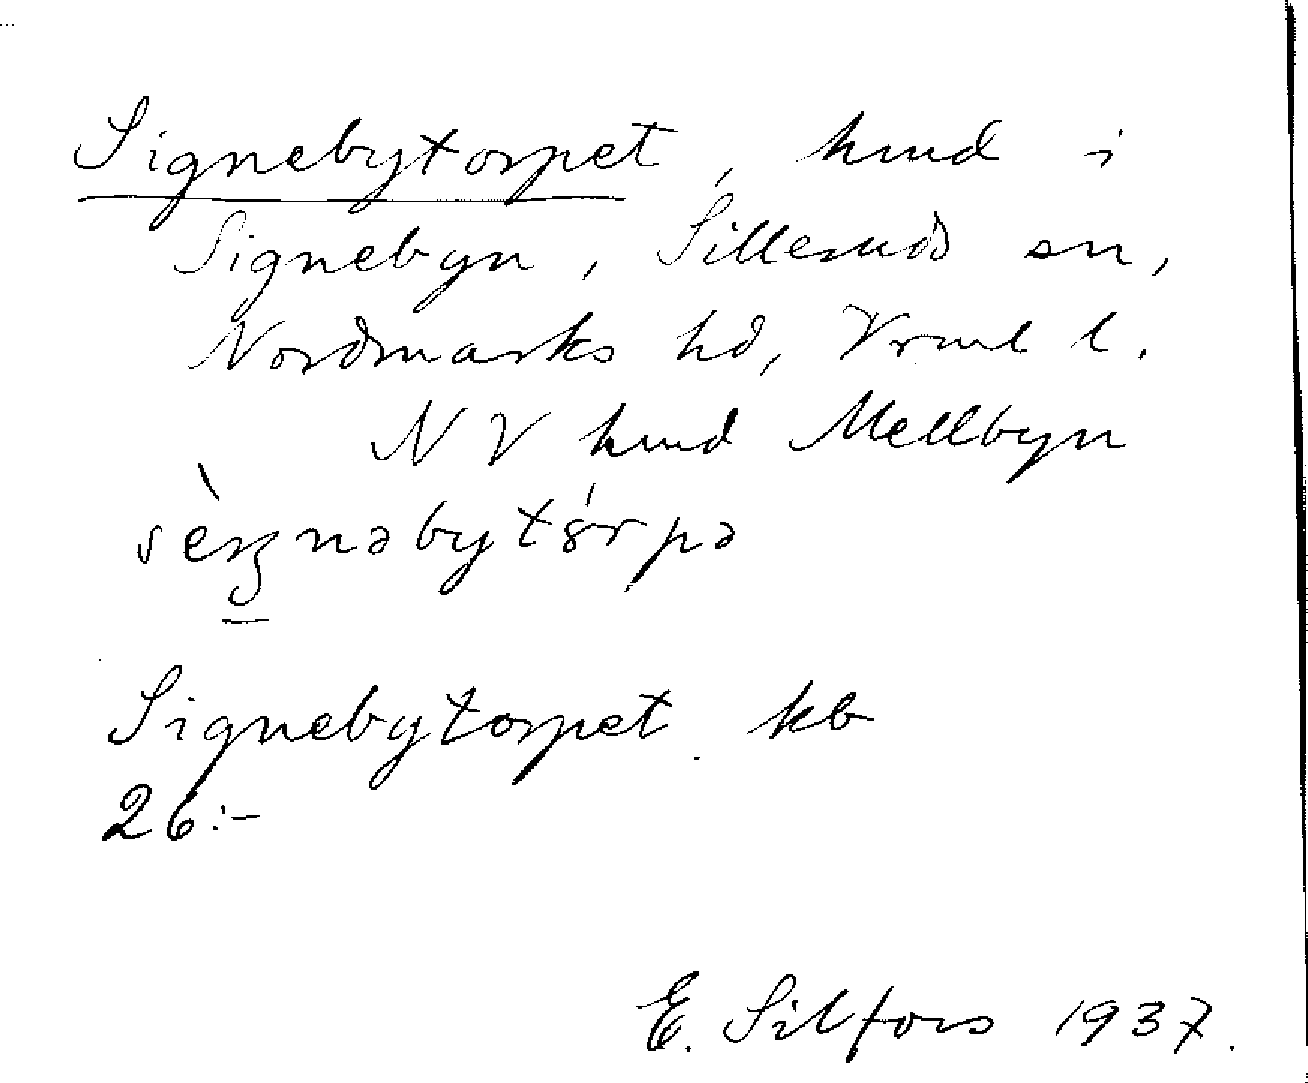 Signebytorpet, hmd i
Signebyn, Silleruds sn,
Nordmarks hd, Vrml l.
NV hmd Mellbyn
Signebytorpet kb
26:-
E. Silfors 1937.